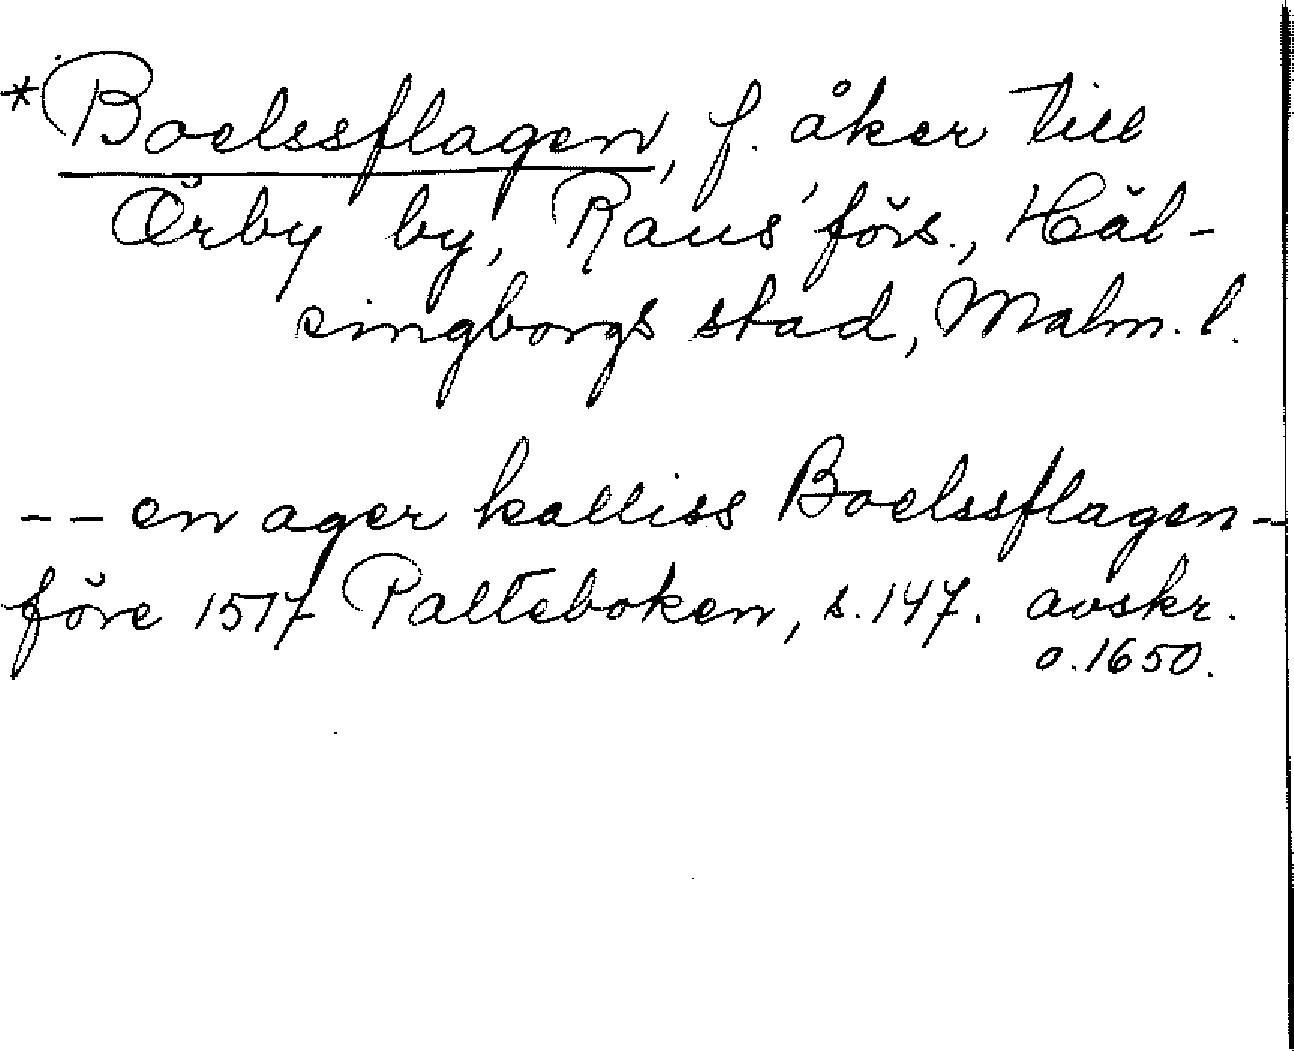 *Boelssflagen, f. åker till
Örby by, Raus' förs., Häl-
singborgs stad, Malm. l.
-- en ager kalliss Boelssflagen --
före 1517 Palteboken, s. 147. avskr.
o. 1650.